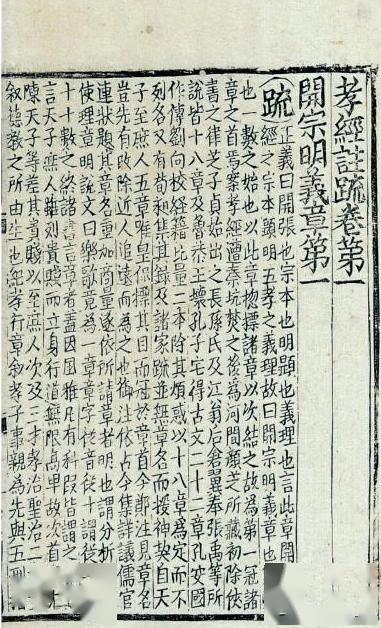 孝經註疏卷第一
開宗明義章第一
疏正義曰開張也宗本也明顯也義理也言此章開張一
經之宗本顯明五孝之義理故曰開宗明義章也第次
也一數之始也以此章揔摽諸章以次結之故為第一冠諸
章之首焉案孝經遭秦坑焚之後為河間顏芝所藏初除俠
書之律芝子貞始出之長孫氏及江翁后倉翼奉張禹等所
說皆十八章及魯恭王壞孔子宅得古文二十二章孔安國
作傳劉向校經籍比量二本除其煩惑以十八章為定而不
列名又有荀昶集其録及諸家䟽並無章名而援神契自天
子至庶人五章唯皇侃摽其目而冠於章首今鄭注見章名
豈先有改除近人追遠而為之也御注依古今集詳議儒官
連狀題其章名重加商量遂依所請章者明也謂分析科段
使理章明說文曰樂歌竟為一章章字從音從十謂從一至
十十數之終諸書言章者蓋因風雅凡有科段皆謂之章焉
言天子庶人雖列貴賤而立身行道無限高卑故次首章先
陳天子等差其貴賤以至庶人次及三才孝治聖治三章並
叙德教之所由生也紀孝行章叙孝子事親為先與五刑相